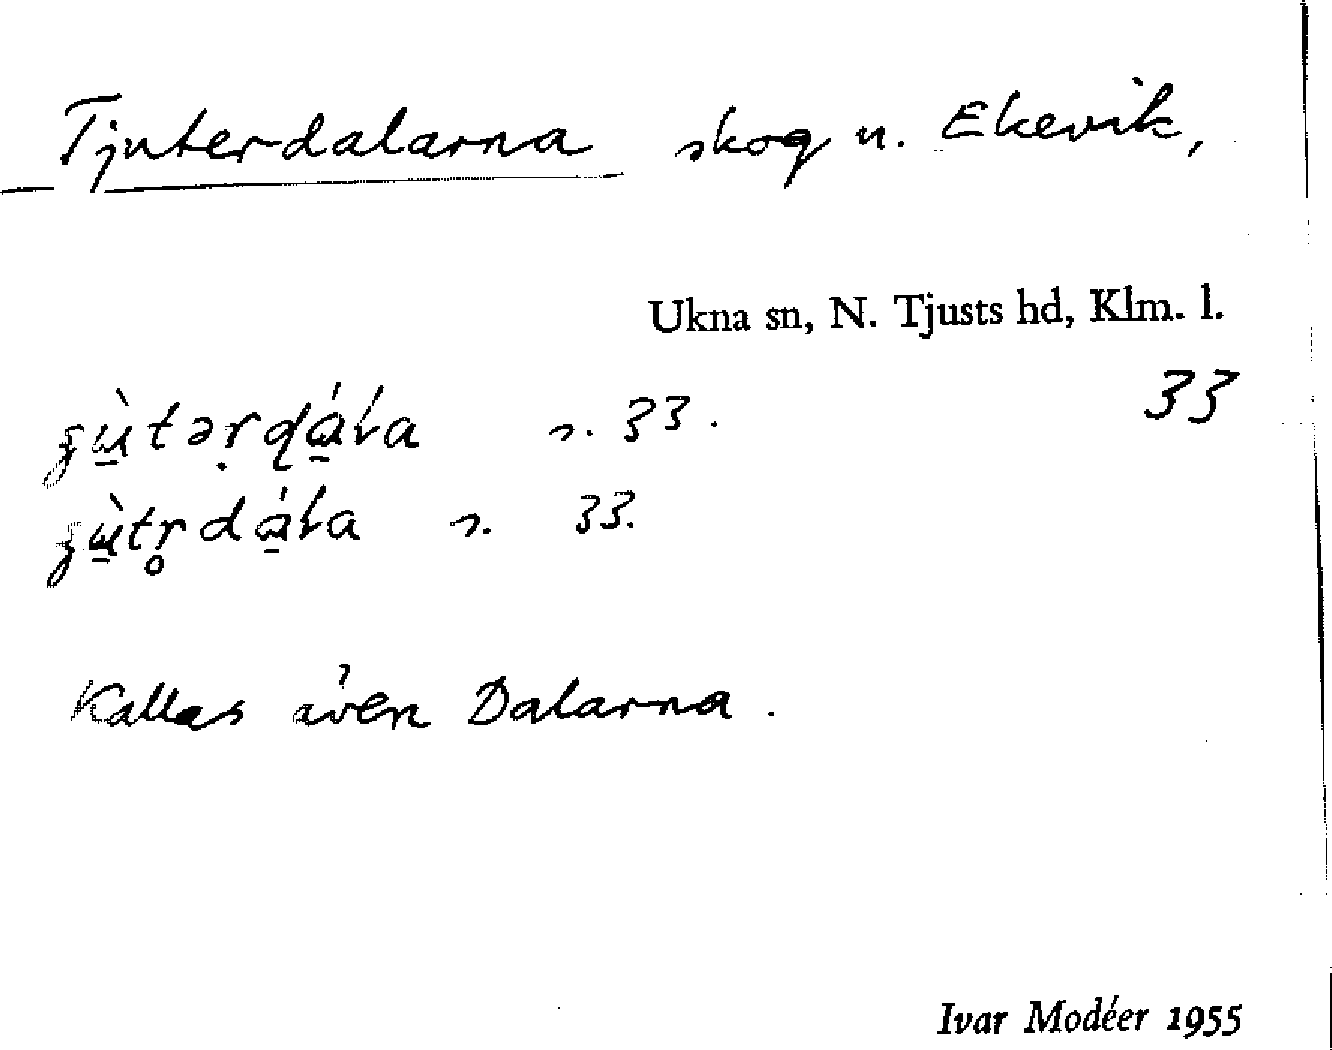 Tjuterdalarna skog u. Ekevik,
Ukna sn, N. Tjusts hd, Klm. l.
33
s. 33.
s. 33.
Kallas även Dalarna.
Ivar Modéer 1955